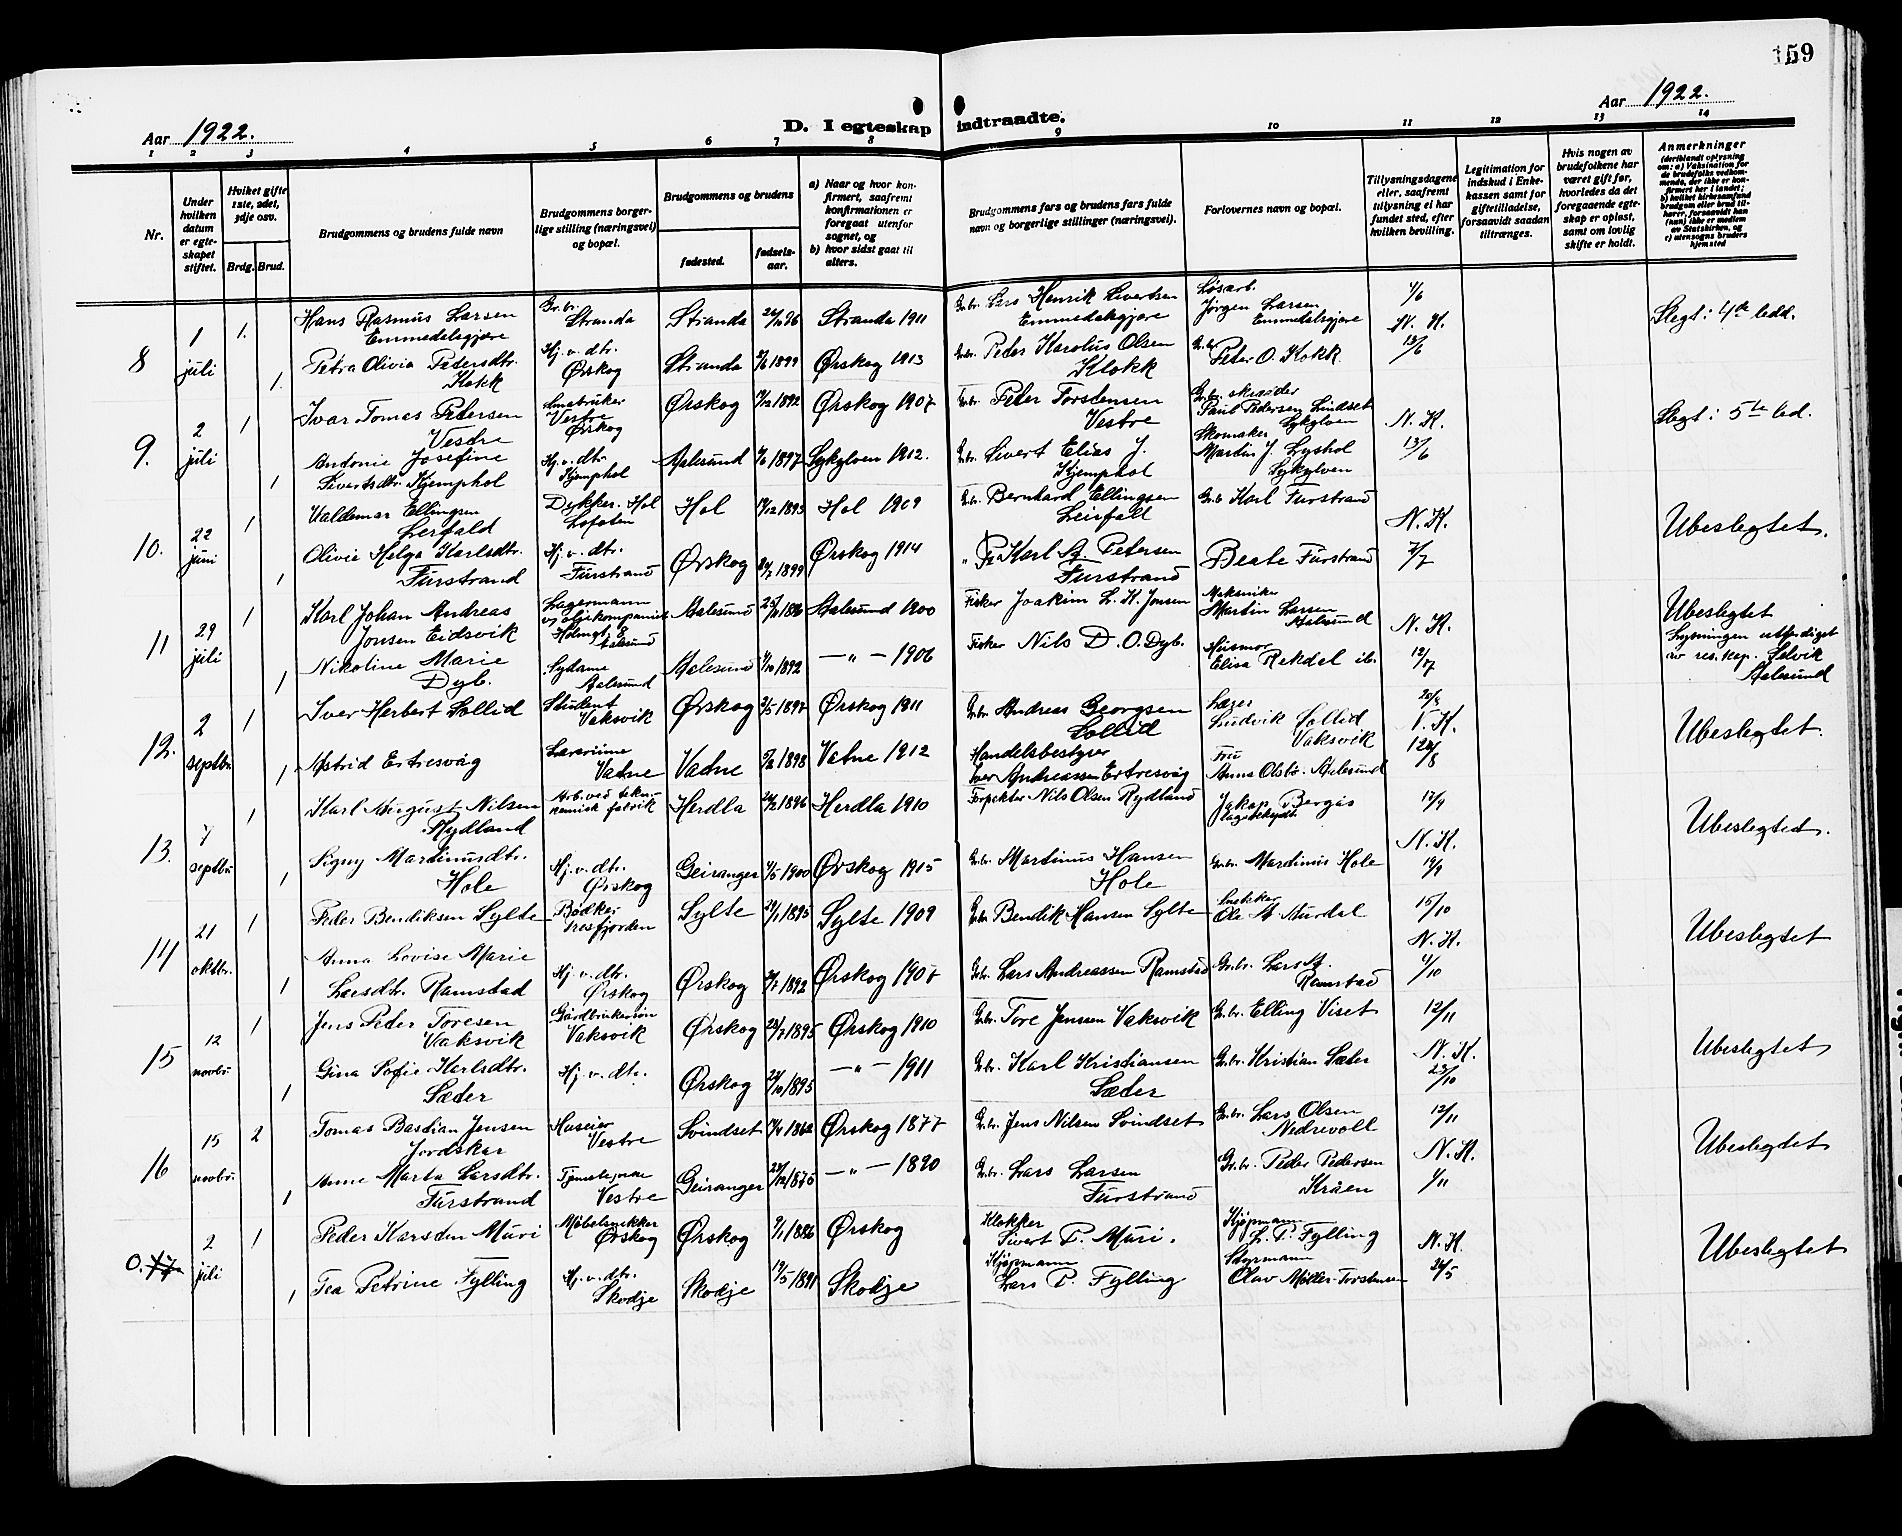 159
Aar 1922.
D. I egteskap indtraadte.
Aar 1922.
1 2 3 4 5 6 7 8 9 10 11 12 13 14
Nr.
Under hvilken datum er egteskapet stiftet.
Hvilket gifte 1ste, 2det, 3dje osv.
Brdg. Brud.
Brudgommens og brudens fulde navn
Brudgommens borgerlige stilling (næringsvei) og bopæl.
Brudgommens og brudens
fødested.
fødselsaar.
a) Naar og hvor konfirmert, saafremt konfirmationen er foregaat utenfor sognet, og
b) hvor sidst gaat til alters.
Brudgommens fars og brudens fars fulde navn og borgerlige stillinger (næringsvei).
Forlovernes navn og bopæl.
Tillysningsdagene eller, saafremt tillysning ei har fundet sted, efter hvilken bevilling.
Legitimation for indskud i Enkekassen samt for giftetilladelse, forsaavidt saadan tiltrænges.
Hvis nogen av brudefolkene har været gift før, hvorledes da det foregaaende egteskap er opløst, samt om lovlig skifte er holdt.
Anmerkninger
8 1 juli 1. Hans Rasmus Larsen Emmedelsgjøre Gr.br. Stranda Stranda Stranda 1911 Gr.br. Lars Henrik Sivertsen Emmedalsgjøre Løsarb. Jörgen Larsen Emmedalsgjøre 4/6 N. K. Slegt i 4de ledd.
1. Petra Olivia Petersdtr. Kokk Hj. v. dtr. Ørskog Stranda 1899 Ørskog 1913 Gr.br. Peder Karolus Olsen Klokk Peter O. Kokk 13/6
9. 2 juli 1 Ivar Tomas Petersen Vestre Smabruker Vestre Ørskog Ørskog 1892 Ørskog 1907 Peter Torstensen Vestre Gr.br. skræder Paul Pedersen Lindset Sykylven N. K. Slegt i 5te led.
1 Antonie Josefine Sivertsdtr. Kjemphol Hj. v. dtr. Kjemphol Aalesund 1897 Sykylven 1912. Gr.br. Sivert Elias J. Kjemphol Skomaker Martin J. Lyshol Sykylven 13/6
10. 22 juni 1 Valdemar Ellingsen Leirfald Dykker. Hol Lofoten Hol 1893 Hol 1909 Gr.br. Bernhard Ellingsen Leirfall Gr.br. Karl Furstrand N. K. Ubeslegtet.
1 Olivie Helga Karlsdtr. Furstrand Hj. v. dtr. Furstrand Ørskog 1899 Ørskog 1914 Karl A. Petersen Furstrand Beate Furstrand 2/7
11 29 juli 1 Karl Johan Andreas Jonsen Eidsvik Lagermann v/ oljekompaniet Aalesund Aalesund Aalesund 1900 Fisker Joakim L. K. Jonsen Mekaniker Martin Larsen Aalesund N. K. Ubeslegtet Lysningen utferdiget av res. kap. Selvik Aalesund
1 Nikoline Marie Dyb. Sydame Aalesund Aalesund 1892 — „ — 1906 Fisker Nils D. O. Dyb. Husmor Elisa Rekdal ib. 12/7
12. 2 septbr. 1 Iver Herbert Sollid Student Vaksvik Ørskog 1897 Ørskog 1911 Gr.br. Andreas Georgsen Sollid Læges Ludvik Sollid Vaksvik V. K. Ubeslegtet.
1 Astrid Ertresvåg Lærerinne Vatne Vatne 1898 Vatne 1912 Handelsbestyrer Iver Andreassen Ertresvåg Fru Anna Olsbö. Aalesund
13. 7 septbr. 1 Karl August Nilsen Rydland Arb. ved teknisk fabrik Herdla 1896 Herdla 1910 Nils Olsen Rydland Jakop Bergås 17/9 N. K. Ubeslegted.
1 Signy Martinusdtr. Hole Hj. v. dtr. Ørskog Geiranger 1900 Ørskog 1915 Gr.br. Martinus Hansen Hole Gr.br. Martinus Hole 19/9
14 21 oktbr. 1 Peder Bendiksen Sylte Bødker Tresfjorden Sylte 1895 Sylte 1909 Gr.br. Bendik Hansen Sylte Snekker Ole A. Aurdal 15/10 N. K. Ubeslegtet
1 Anna Lovise Marie Larsdtr. Ramstad Hj. v. dtr. Ørskog Ørskog 1892 Ørskog 1907 Gr.br. Lars Andreassen Ramstad Gr.br. Lars A. Ramstad
15 12 novbr. 1 Jens Peder Toresen Vaksvik Gårdbrukersøn Vaksvik Ørskog 1895 Ørskog 1910 Gr.br. Tore Jenssen Vaksvik Gr.br. Elling Viset 12/11 N. K. Ubeslegtet
1 Gina Sofie Karlsdtr. Sæder Hj. v. dtr. Ørskog 1895 — „ — 1911 Gr.br. Karl Kristiansen Sæder Gr.br. Kristian Sæter 23/10
16 15 novbr. 2 Tomas Bastian Jensen Jordskar Huseier Vestre Svindset 1862 Ørskog 1877 Gr.br. Jens Nilsen Svindset Gr.br. Lars Olsen Nedrevoll 12/11 N. K. Ubeslegtet
1 Anne Marta Larsdtr. Furstrand Tjenstepike Vestre Geiranger 1875 — „ — 1890 Gr.br. Lars Larsen Furstrand Gr.br. Peder Pedersen Kråen 1/11
0. 17 2 juli 1 Peder Karsten Muri Møbelsnekker Ørskog Ørskog 1886 Ørskog Klokker Sivert P. Muri. Kjøpmann L. P. Fylling N. K. Ubeslegtet
1 Tea Petrine Fylling Hj. v. dtr. Skodje Skodje 19/5 1891 Skodje Kjøpmann Lars P. Fylling Olav Møller-Torstensen 24/5